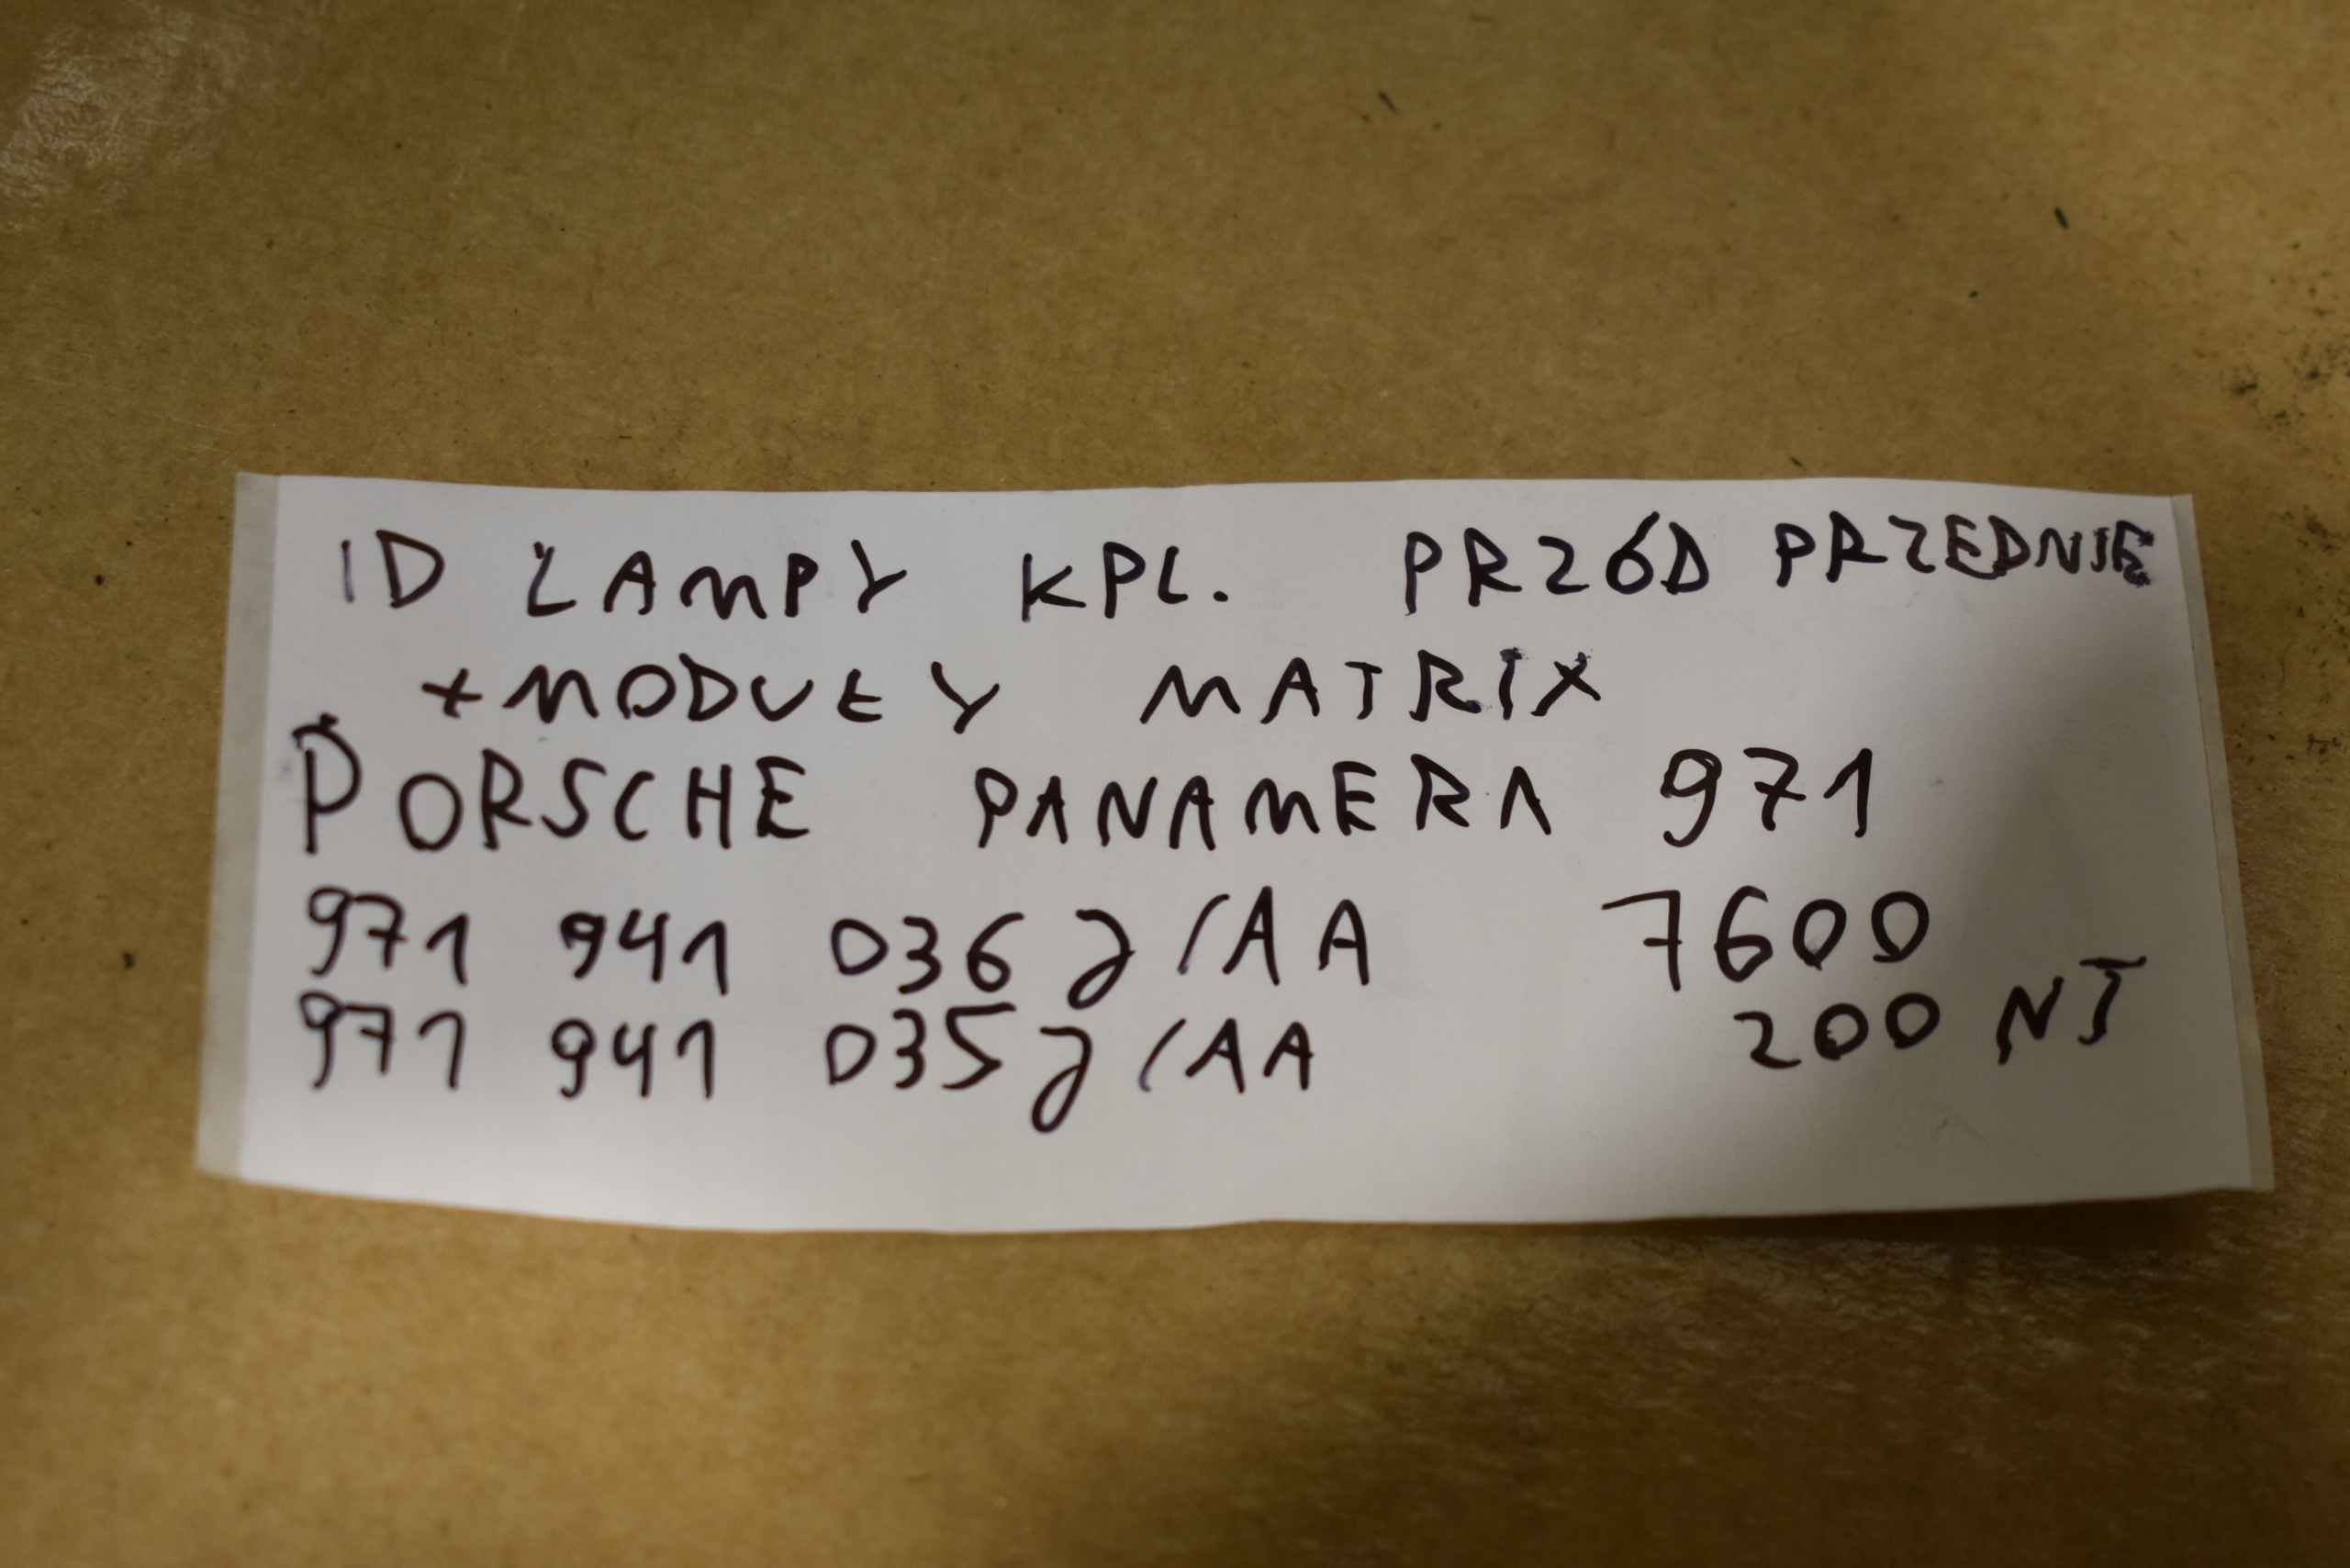 ID LAMPY KPL. PRZÓD PRZEDNIE
+MODUŁY MATRIX
PORSCHE PANAMERA 971
971 941 036 J /AA 7600
971 941 035 J /AA 200 NJ